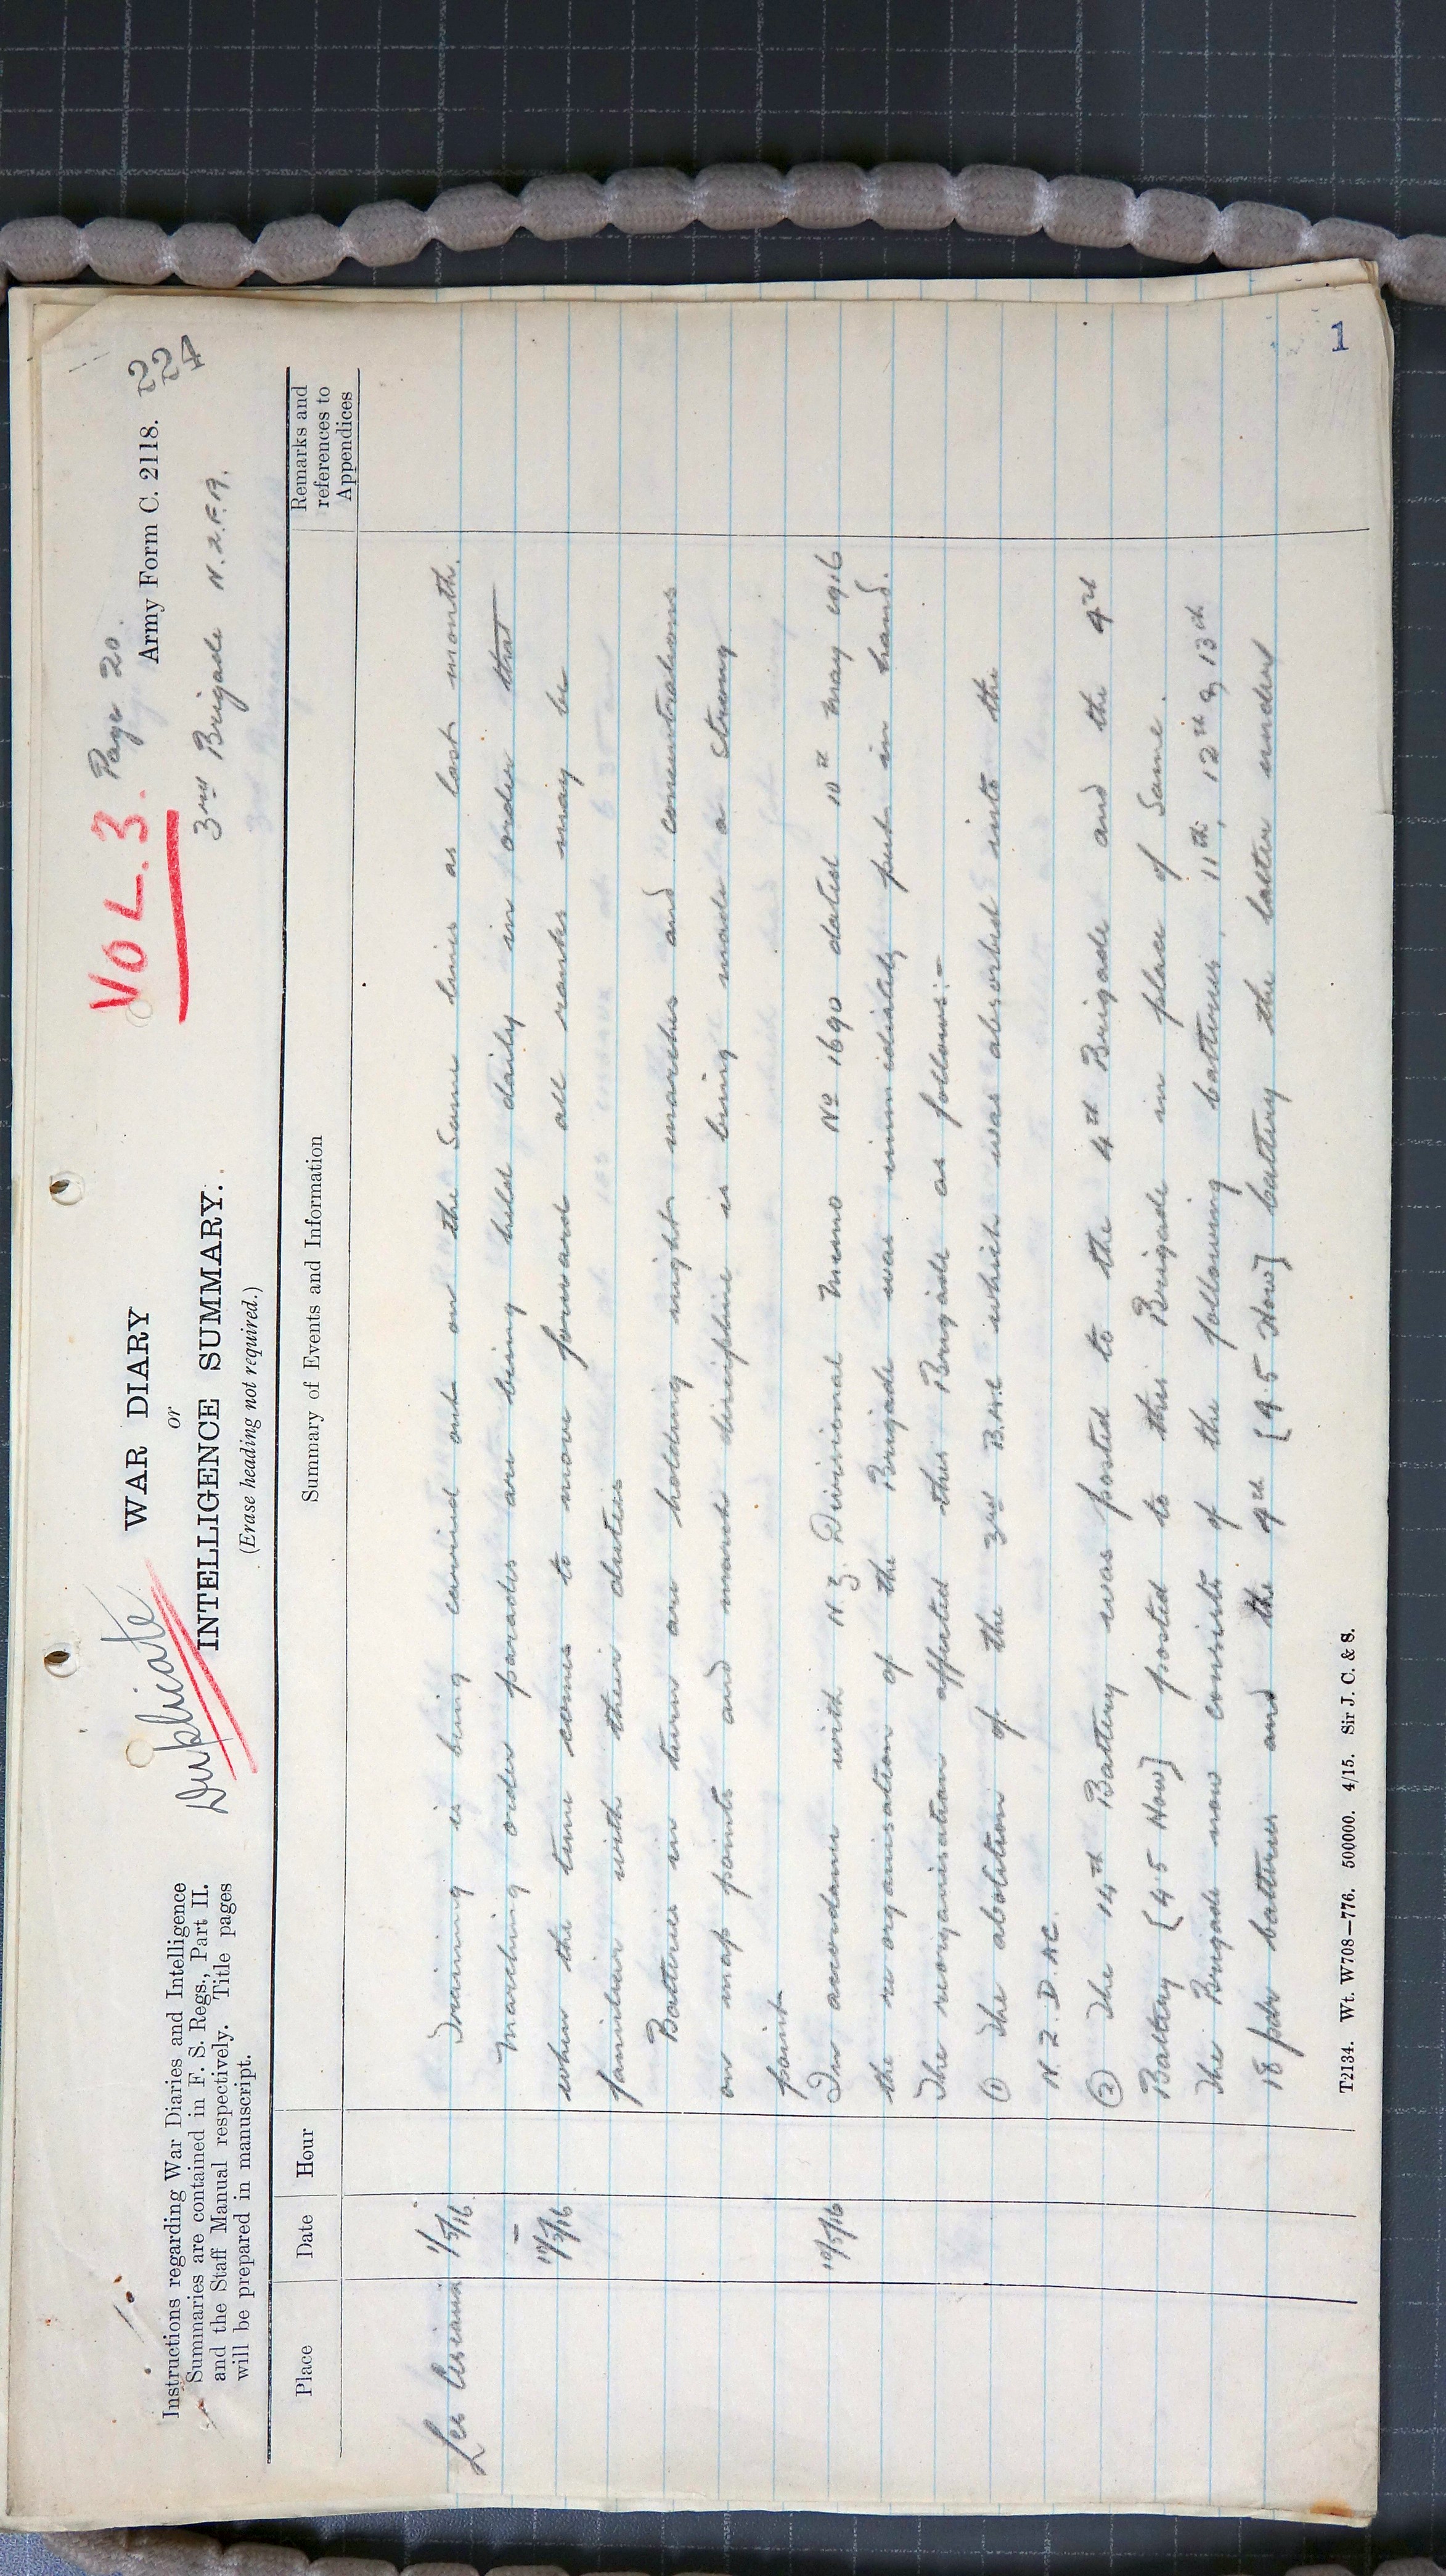 VOL. 3. Page 20.
224
Duplicate
WAR DIARY
Army Form C. 2118.
or
INTELLIGENCE SUMMARY.
3rd Brigade N.Z.F.A.
(Erase heading not required.)
Instructions regarding War Diaries and Intelligence
Summaries are contained in F. S. Regs., Part II.
and the Staff Manual respectively. Title pages
will be prepared in manuscript.
Place Date Hour Summary of Events and Information Remarks and references to Appendices
Les 1/5/16 Training is being carried out on the same lines as last month.
- Marching order parades are being held daily in order that
10/5/16 when the time comes to move forward all ranks may be
familiar with their duties
Batteries in turn are holding night marches and concentrations
on map points and march discipline is being made a strong
point
10/5/16 In accordance with N.Z. Divisional Memo No 1690 dated 10th May 1916
the re organisation of the Brigade was immediately put in hand.
The reorganisation affected this Brigade as follows:-
(1) The abolition of the 3rd B.A.C which was absorbed into the
N.Z.D.AC.
(2) The 14th Battery was posted to the 4th Brigade and the 4th
Battery [4.5 How] posted to this Brigade in place of same.
The Brigade now consists of the following batteries, 11th, 12th & 13th
18 pdr batteries and the 4th [4.5 How] battery the latter under
T2134. Wt. W708—776. 500000. 4/15. Sir J. C. & S.
1